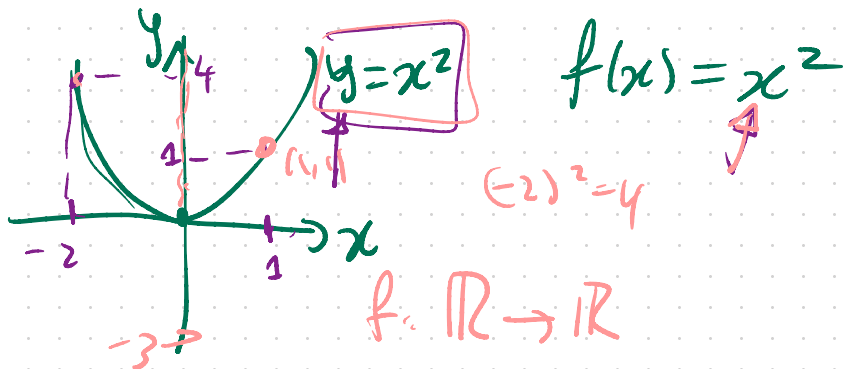 y
4
y=x²
f(x)=x²
1
(1,1)
(-2)²=4
-2
1
x
f: ℝ→ℝ
-3